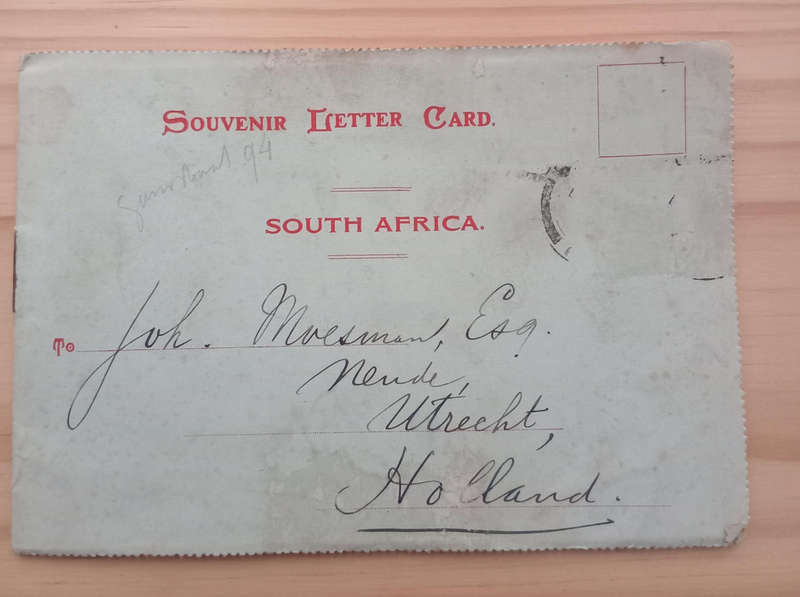 SOUVENIR LETTER CARD.
94
SOUTH AFRICA.
To Joh. Moesman, Esq.
Neude,
Utrecht,
Holland.